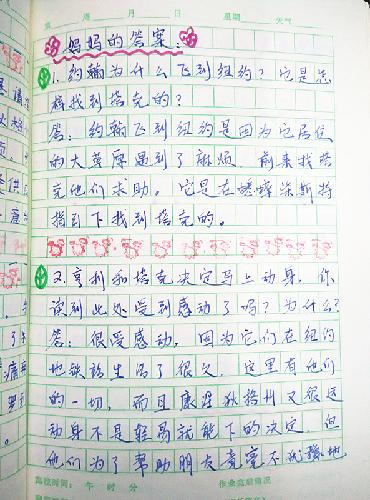 页 周 月 日 星期 天气
妈妈的答案：
1.约翰为什么飞到纽约？它是怎
样找到塔克的？
答：约翰飞到纽约是因为它居住
的大草原遇到了麻烦，前来找塔
克他们求助。它是在蟋蟀柴斯特
指引下找到塔克的。
2.亨利和塔克决定马上动身，你
读到此处受到感动了吗？为什么？
答：很受感动，因为它们在纽约
地铁站生活了很久，这里有他们
的一切，而且康涅狄格州又很远
动身不是轻易就能下的决定，但
他们为了帮助朋友竟毫不犹豫地
离校时间： 午 时 分 作业完成情况